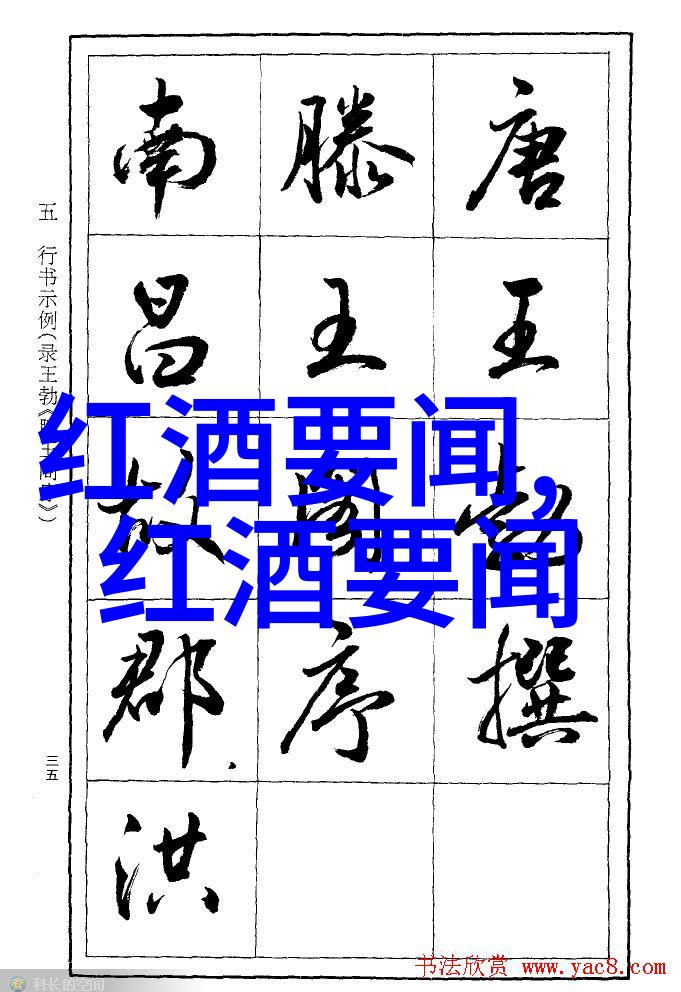 唐王勃撰
滕王 序
南昌故郡洪
五 行书示例(录王勃《 》)
三五
红酒要闻,
红酒要闻
书法欣赏 www.yac8.com
科长的空间